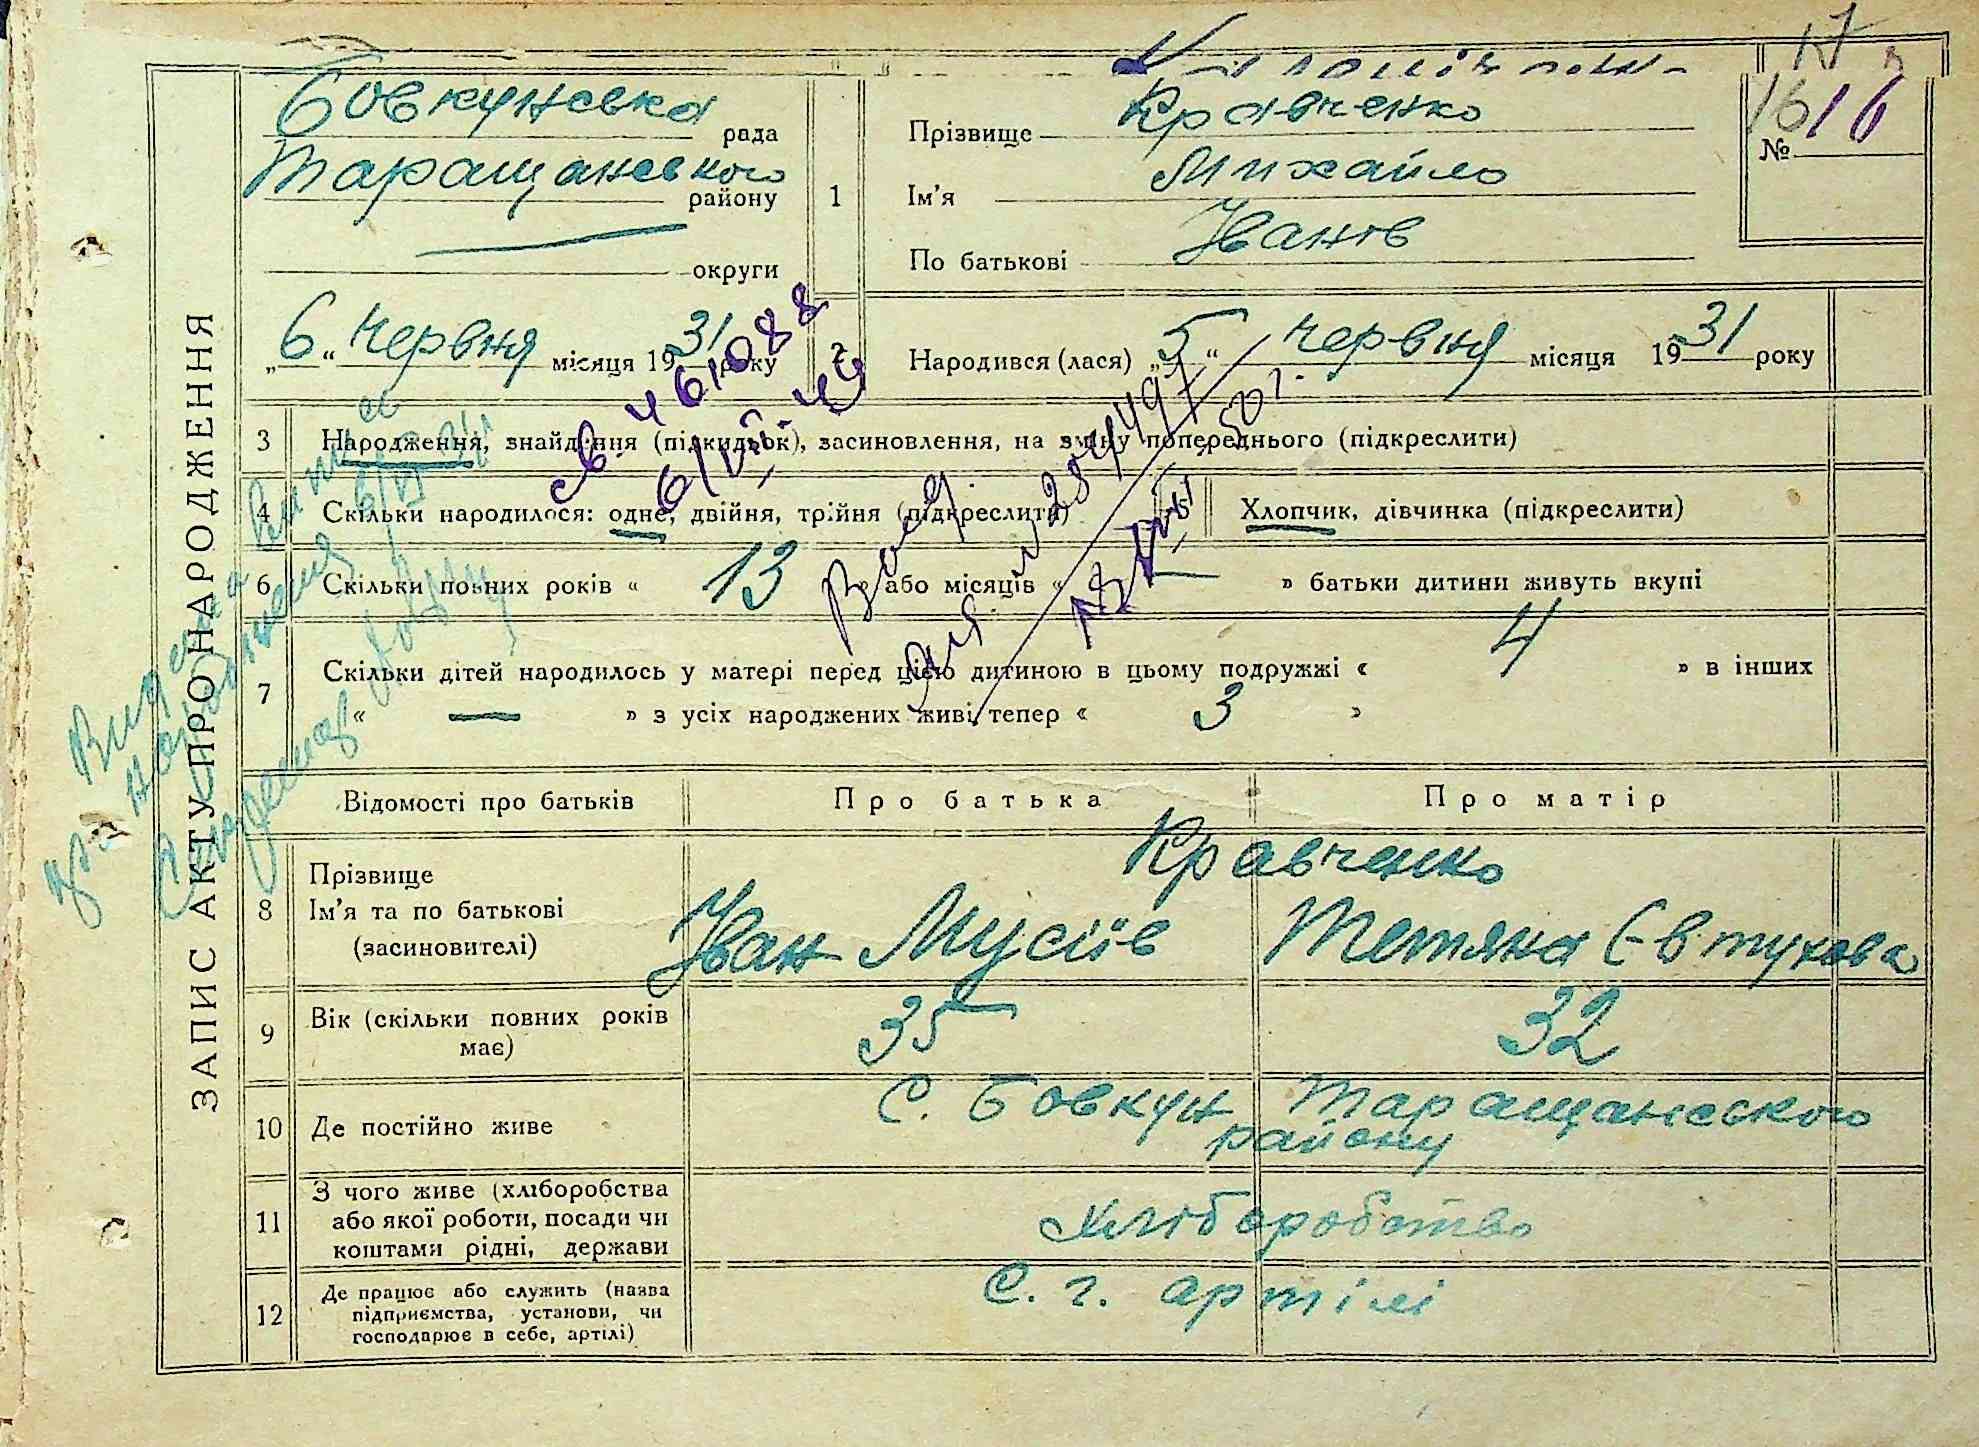 17
16 16
№
ЗАПИС АКТУ ПРО НАРОДЖЕННЯ
Бовкунська рада
Таращанського району
округи
1
Прізвище Кравченко
Ім'я Михайло
По батькові Іванів
„6“ червня місяця 1931 року
2
Народився (лася) „5“ червня місяця 1931 року
св. 461088
3 Народження, знайдення (підкидьок), засиновлення, на зміну попереднього (підкреслити)
4 Скільки народилося: одне, двійня, трійня (підкреслити)
Хлопчик, дівчинка (підкреслити)
6 Скільки повних років « 13 » або місяців « — » батьки дитини живуть вкупі
7 Скільки дітей народилось у матері перед цією дитиною в цьому подружжі « 4 » в інших
« — » з усіх народжених живі тепер « 3 »
Видана
Відомості про батьків
Про батька
Про матір
8 Прізвище
Ім'я та по батькові
(засиновителі)
Кравченко
Іван Мусіїв
Тетяна Євтухова
9 Вік (скільки повних років має)
35
32
10 Де постійно живе
С. Бовкун Таращанського
району
11 З чого живе (хліборобства
або якої роботи, посади чи
коштами рідні, держави
хліборобство
12 Де працює або служить (назва
підприємства, установи, чи
господарює в себе, артілі)
С. г. артілі